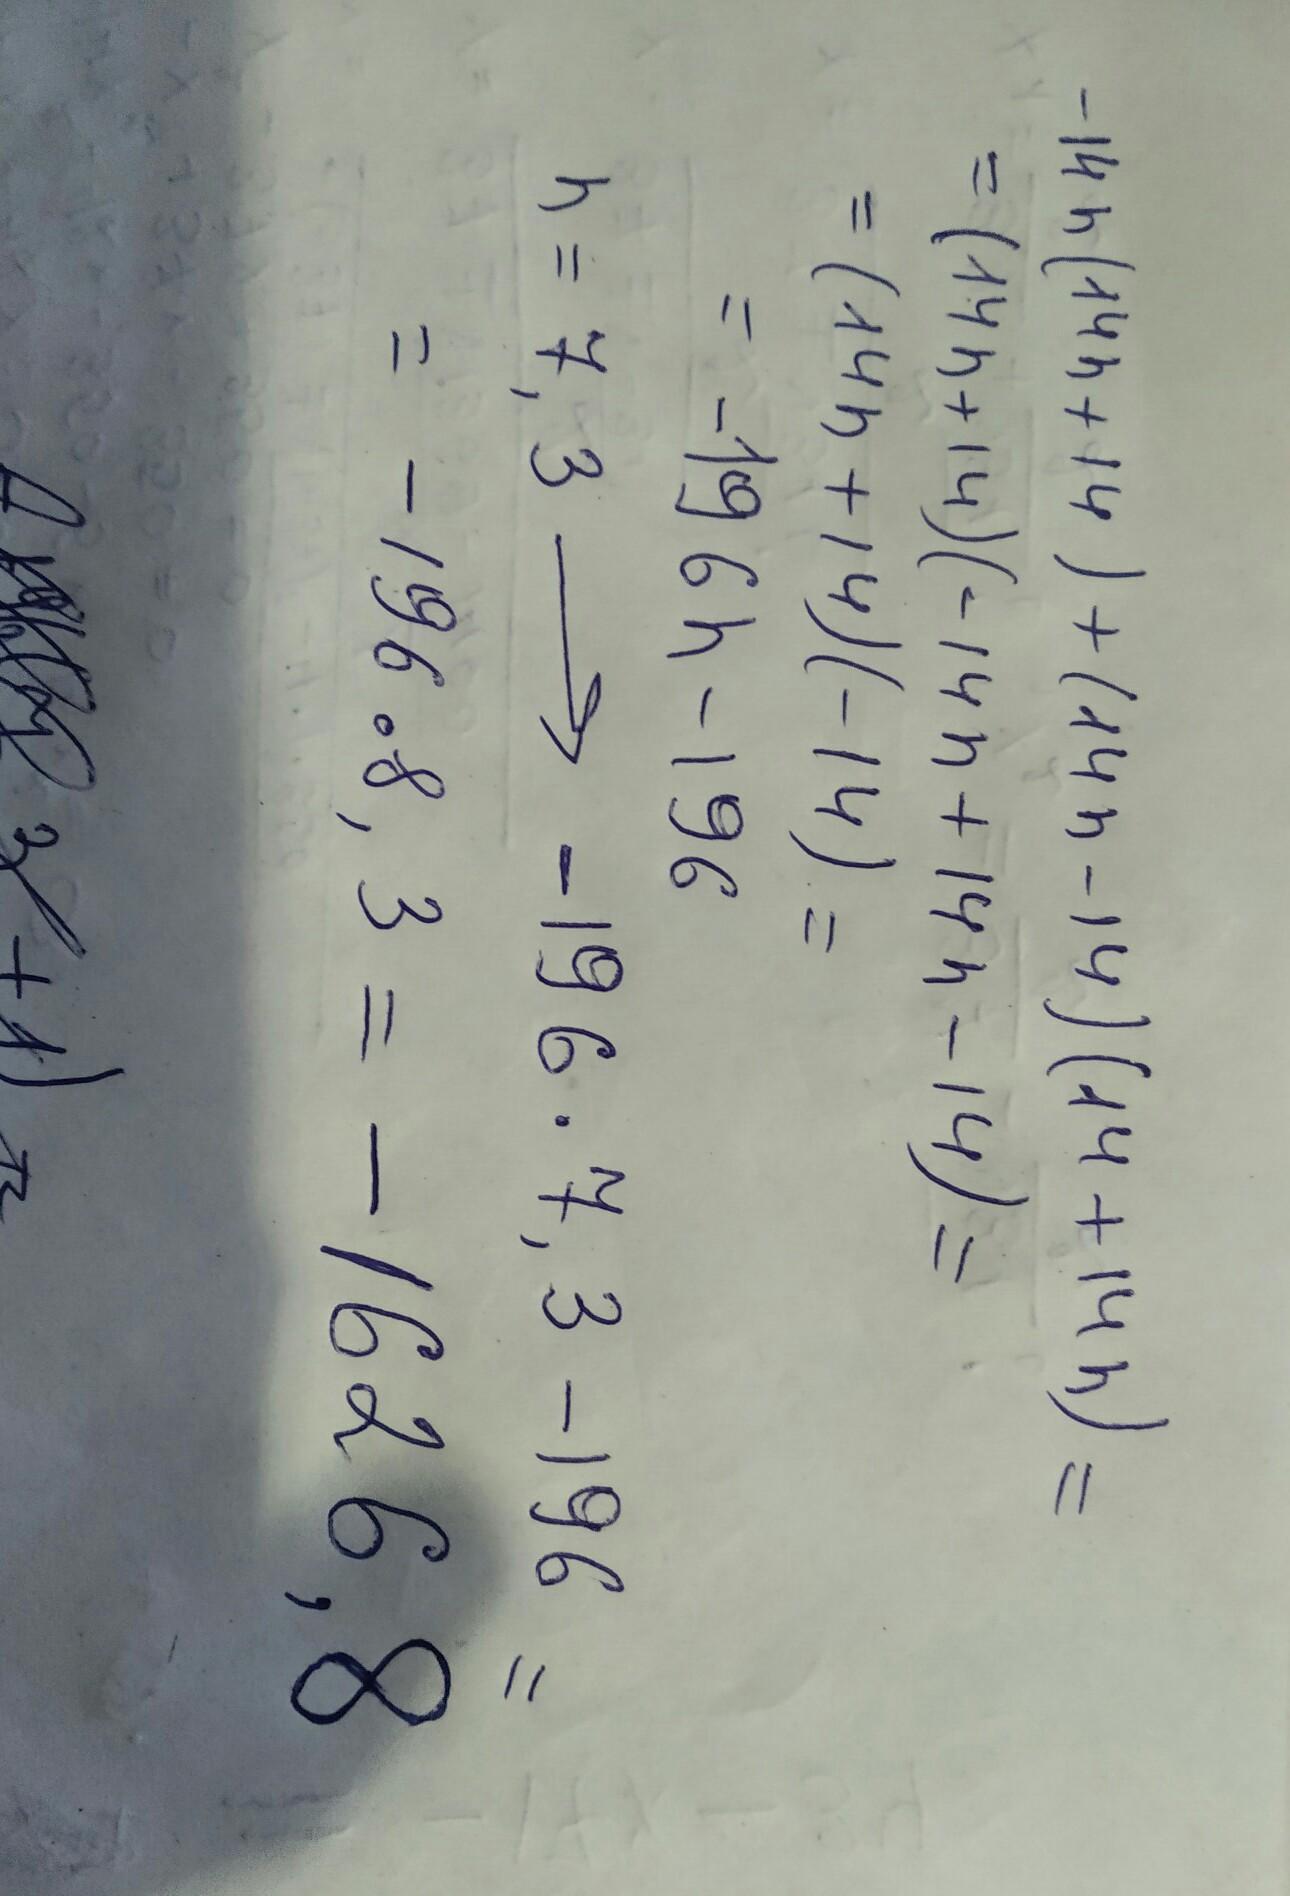 -14n(14n+14)+(14n-14)(14+14n)=
=(14n+14)(-14n+14n-14)=
=(14n+14)(-14)=
=-196n-196
n=7,3 → -196·7,3-196=
=-196·8,3=-1626,8
+1)